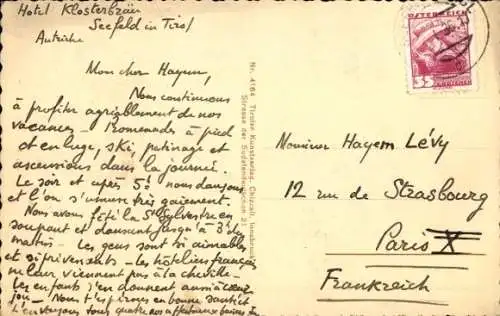 Hotel Klosterbräu
Seefeld in Tirol
Autriche
Mon cher Hayem,
Nous continuons
à profiter agréablement de nos
vacances - Promenades à pied
et en luge, ski, patinage et
ascensions dans la journée.
Le soir et après 5h nous dansons
et l'on s'amuse très gaiement.
Nous avons fêté la St Sylvestre en
soupant et dansant jusqu'à 3h du
matin - Les gens sont si aimables
et si prévenants - Les hôteliers français
ne leur viennent pas à la cheville -
Les enfants s'en donnent aussi à cœur
joie - Nous t'espérons en bonne santé et
t'envoyons tous quatre nos affectueux baisers
Nr. 416a Tiroler Kunstverlag Chizzali, Innsbruck
Strasse der Sudetendeutschen 21
ÖSTERREICH
35
Monsieur Hayem Lévy
12 rue de Strasbourg
Paris X
Frankreich